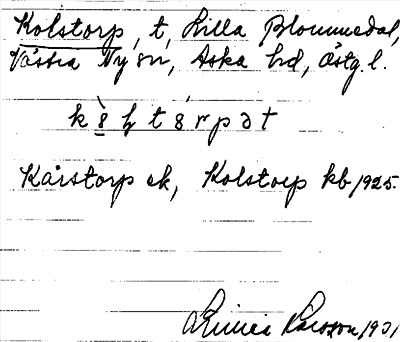 Kolstorp, t, Lilla Blommedal,
Västra Ny sn, Aska hd, Östg. l.
Kårstorp ek, Kolstorp kb 1925.
Larsson 1931